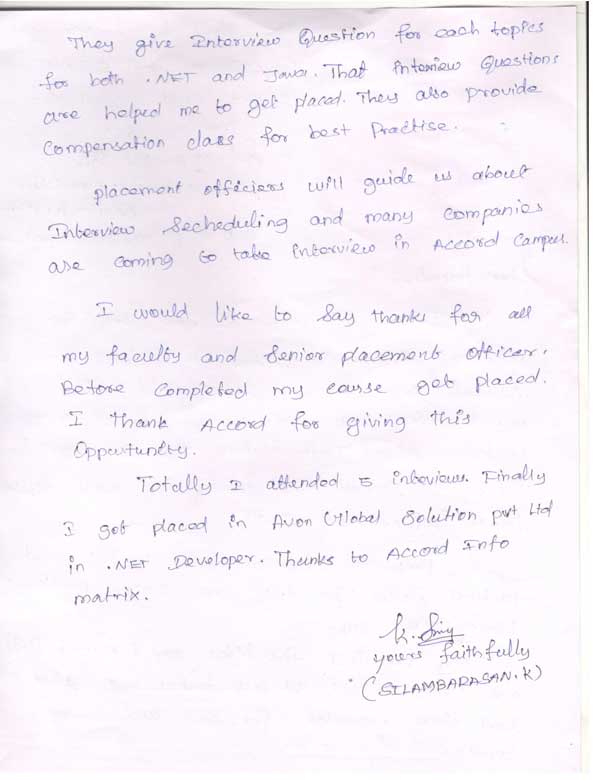 They give Interview Question for each topics
for both .NET and Java. That Interview Questions
are helped me to get placed. They also provide
Compensation class for best Practise.
placement officiers will guide us about
Interview Secheduling and many Companies
are coming to take Interview in Accord Campus.
I would like to Say thanks for all
my faculty and Senior placement officer.
Before Completed my course get placed.
I thank Accord for giving this
Oppurtunity.
Totally I attended 5 interviews. Finally
I got placed in Avon Global Solution pvt Ltd
in .NET Developer. Thanks to Accord Info
matrix.
K.
yours faithfully
(SILAMBARASAN.K)